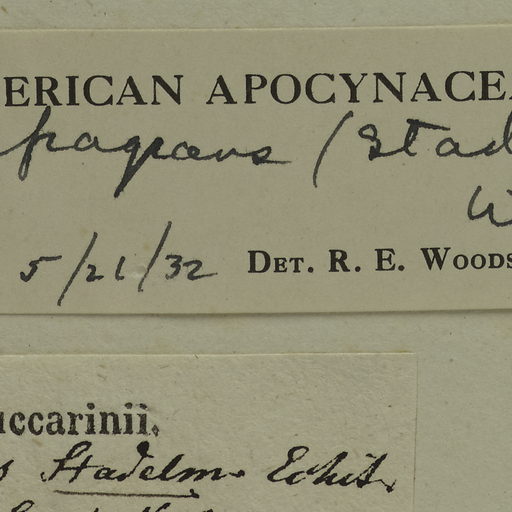 ERICAN APOCYNACEA
fragrans (Stad
W
5/21/32 DET. R. E. WOODS
uccarinii.
s Stadelm. Echit.